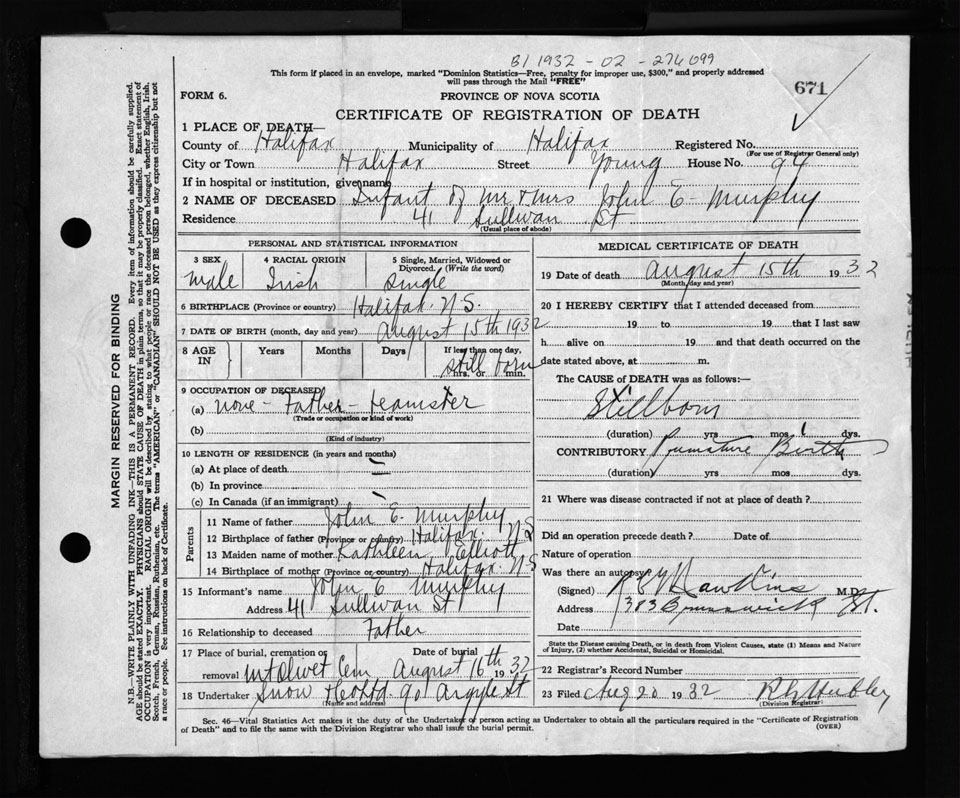 B1 1932 - 02 - 276099
This form if placed in an envelope, marked "Dominion Statistics—Free, penalty for improper use, $300," and properly addressed
will pass through the Mail "FREE"
671
FORM 6.
PROVINCE OF NOVA SCOTIA
CERTIFICATE OF REGISTRATION OF DEATH
1 PLACE OF DEATH—
County of Halifax Municipality of Halifax Registered No.
(For use of Registrar General only)
City or Town Halifax Street Young House No. 94
If in hospital or institution, give name
2 NAME OF DECEASED Infant of Mr & Mrs John E. Murphy
Residence 41 Sullivan St
(Usual place of abode)
PERSONAL AND STATISTICAL INFORMATION
3 SEX 4 RACIAL ORIGIN 5 Single, Married, Widowed or
Divorced. (Write the word)
Male Irish Single
6 BIRTHPLACE (Province or country) Halifax N.S.
7 DATE OF BIRTH (month, day and year) August 15th 1932
8 AGE IN Years Months Days If less than one day,
hrs. or min.
still born
9 OCCUPATION OF DECEASED
(a) none - Father - teamster
(Trade or occupation or kind of work)
(b)
(Kind of industry)
10 LENGTH OF RESIDENCE (in years and months)
(a) At place of death
(b) In province
(c) In Canada (if an immigrant)
Parents
11 Name of father John E. Murphy
12 Birthplace of father (Province or country) Halifax. N.S
13 Maiden name of mother Kathleen Elliott
14 Birthplace of mother (Province or country) Halifax. N.S
15 Informant's name John E Murphy
Address 41 Sullivan St
16 Relationship to deceased Father
17 Place of burial, cremation or removal Date of burial
Mt Olivet Cem August 16th 1932
18 Undertaker Snow & Co Ltd. 90 Argyle St
(Name and address)
MEDICAL CERTIFICATE OF DEATH
19 Date of death August 15th 1932
(Month, day and year)
20 I HEREBY CERTIFY that I attended deceased from
19 to 19 that I last saw
h alive on 19 and that death occurred on the
date stated above, at m.
The CAUSE OF DEATH was as follows:—
Stillborn
(duration) yrs mos dys.
CONTRIBUTORY Premature Birth
(duration) yrs mos dys.
21 Where was disease contracted if not at place of death?
Did an operation precede death? Date of
Nature of operation
Was there an autopsy
(Signed) Hawkins M.D.
Address 383 Brunswick St.
Date
State the Disease causing Death, or in death from Violent Causes, state (1) Means and Nature
of Injury, (2) whether Accidental, Suicidal or Homicidal.
22 Registrar's Record Number
23 Filed Aug 20 1932
(Division Registrar)
Sec. 46—Vital Statistics Act makes it the duty of the Undertaker or person acting as Undertaker to obtain all the particulars required in the "Certificate of Registration
of Death" and to file the same with the Division Registrar who shall issue the burial permit. (OVER)
MARGIN RESERVED FOR BINDING
N.B.—WRITE PLAINLY WITH UNFADING INK—THIS IS A PERMANENT RECORD. Every item of information should be carefully supplied.
AGE should be stated EXACTLY. PHYSICIANS should STATE CAUSE OF DEATH in plain terms, so that it may be properly classified. Exact statement of
OCCUPATION is very important. RACIAL ORIGIN will be described by stating to what people or race the deceased person belonged, whether English, Irish,
Scotch, French, German, Russian, Ruthenian, etc. The terms "AMERICAN" or "CANADIAN" SHOULD NOT BE USED as they express citizenship but not
a race or people. See instructions on back of Certificate.